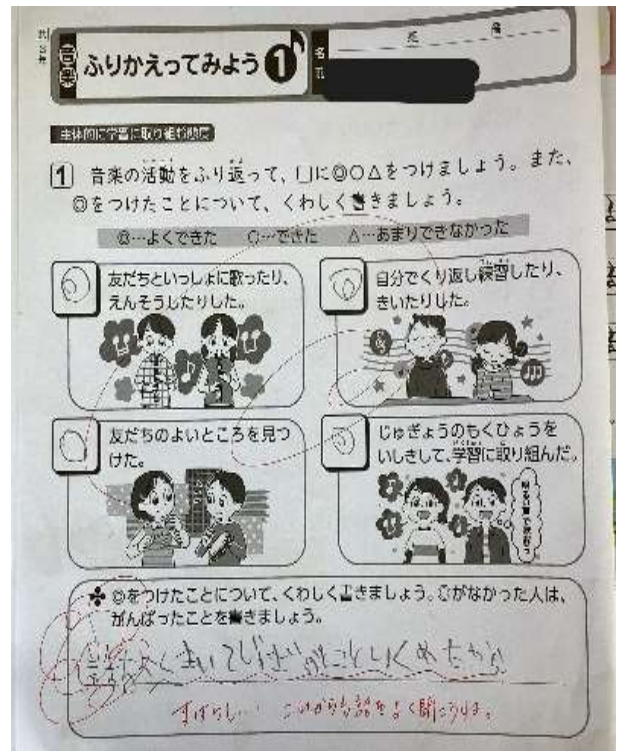 音楽
ふりかえってみよう 1
名
主体的に学習に取り組む態度
1 音楽の活動をふり返って、□に◎○△をつけましょう。また、
◎をつけたことについて、くわしく書きましょう。
◎…よくできた ○…できた △…あまりできなかった
◎ 友だちといっしょに歌ったり、
えんそうしたりした。
◎ 自分でくり返し練習したり、
きいたりした。
○ 友だちのよいところを見つ
けた。
◎ じゅぎょうのもくひょうを
いしきして、学習に取り組んだ。
◎をつけたことについて、くわしく書きましょう。◎がなかった人は、
がんばったことを書きましょう。
すばらしい! これからも話をよく聞こうね。